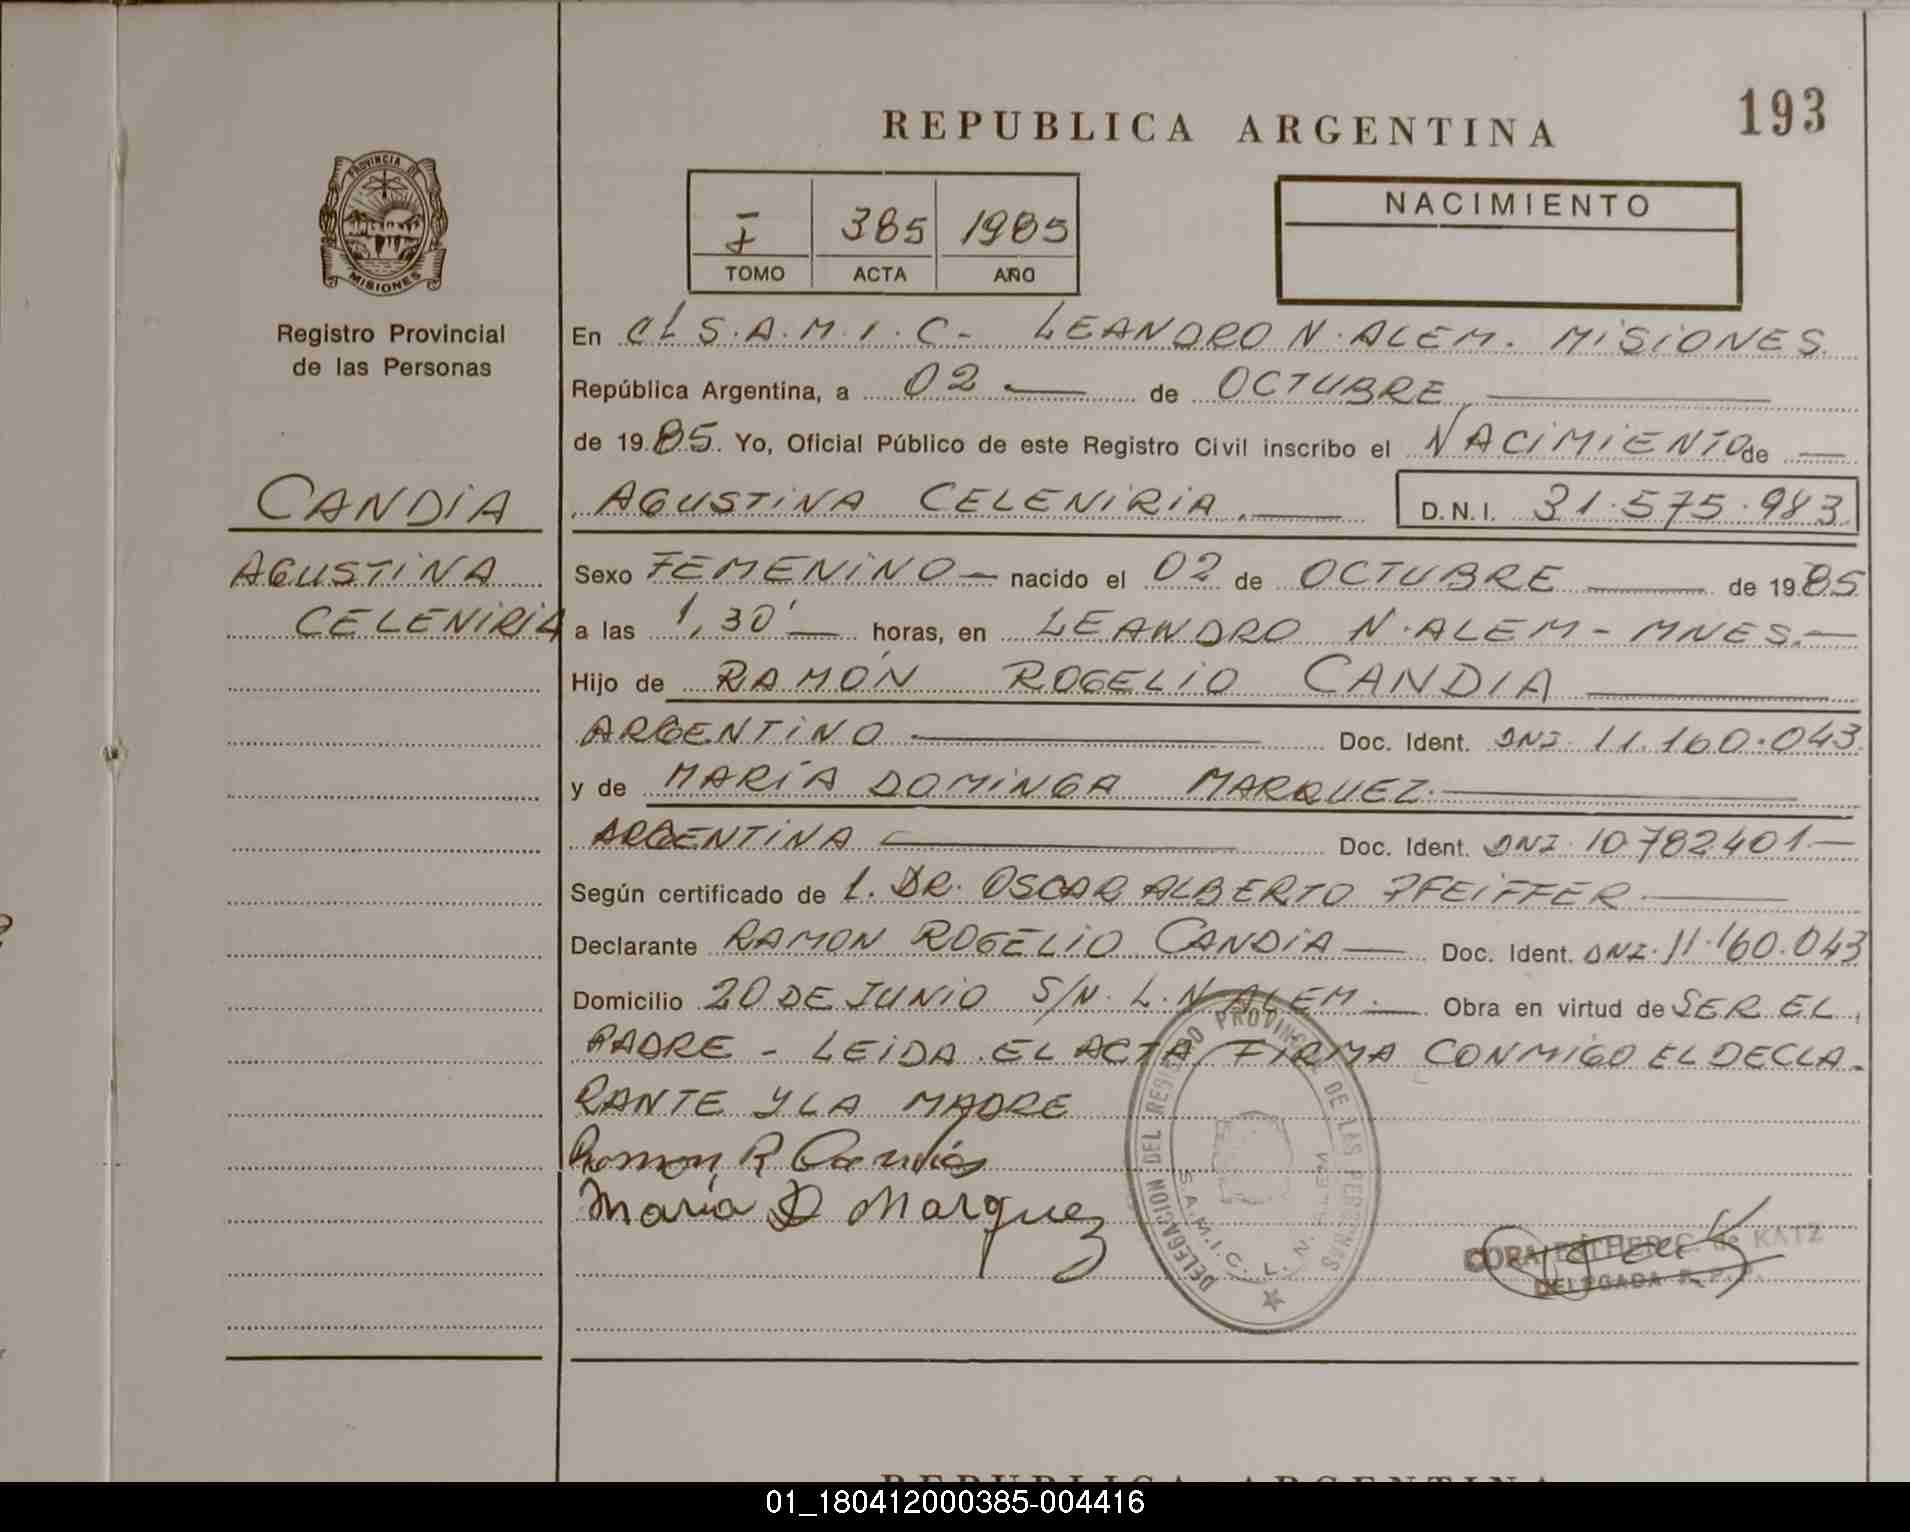 193
REPUBLICA ARGENTINA
PROVINCIA DE
MISIONES
Registro Provincial
de las Personas
I 385 1985
TOMO ACTA AÑO
NACIMIENTO
En el S.A.M.I.C - LEANDRO N. ALEM. MISIONES
República Argentina, a 02 — de OCTUBRE
de 1985. Yo, Oficial Público de este Registro Civil inscribo el NACIMIENTO de —
CANDIA
AGUSTINA CELENIRIA. D.N.I. 31.575.983
AGUSTINA
CELENIRIA
Sexo FEMENINO — nacido el 02 de OCTUBRE — de 1985
a las 1,30' — horas, en LEANDRO N. ALEM - MNES. —
Hijo de RAMÓN ROGELIO CANDIA
ARGENTINO — Doc. Ident. DNI. 11.160.043
y de MARÍA DOMINGA MARQUEZ. —
ARGENTINA — Doc. Ident. DNI. 10.782401. —
Según certificado de l. DR. OSCAR ALBERTO PFEIFFER —
Declarante RAMON ROGELIO CANDIA — Doc. Ident. DNI. 11.160.043
Domicilio 20 DE JUNIO S/N. L. N. ALEM. — Obra en virtud de SER EL
PADRE - LEIDA EL ACTA FIRMA CONMIGO EL DECLA-
RANTE Y LA MADRE
Ramon R Candia
María D Marquez
DELEGACION DEL REGISTRO PROVINCIAL DE LAS PERSONAS
S.A.M.I.C. L. N. ALEM
CORA ESTHER C. de KATZ
DELEGADA R. P. P.
REPUBLICA ARGENTINA
01_180412000385-004416